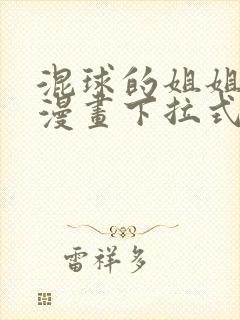 混球的姐姐
漫畫下拉式
雷祥多